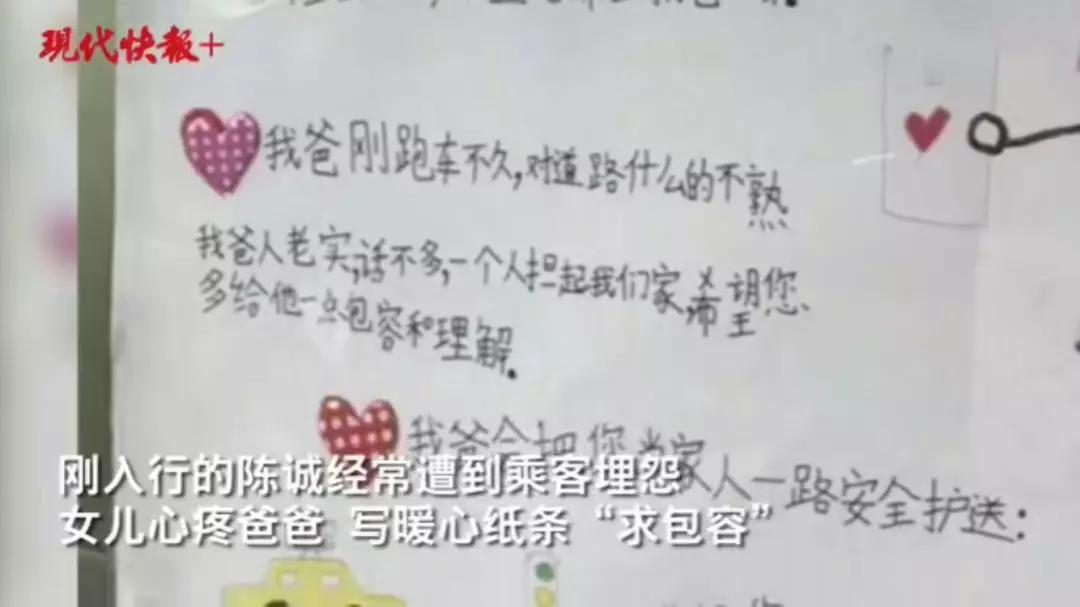 现代快报+
我爸刚跑车不久,对道路什么的不熟
我爸人老实,话不多,一个人担起我们家,希望您
多给他一点包容和理解.
我爸会把您当家人一路安全护送:
刚入行的陈诚经常遭到乘客埋怨
女儿心疼爸爸 写暖心纸条“求包容”